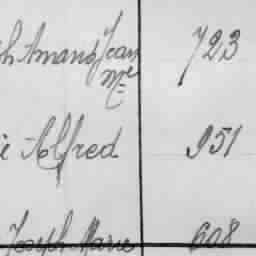 Amand Jean 723
Mie
Alfred 951
Joseph Marie 608